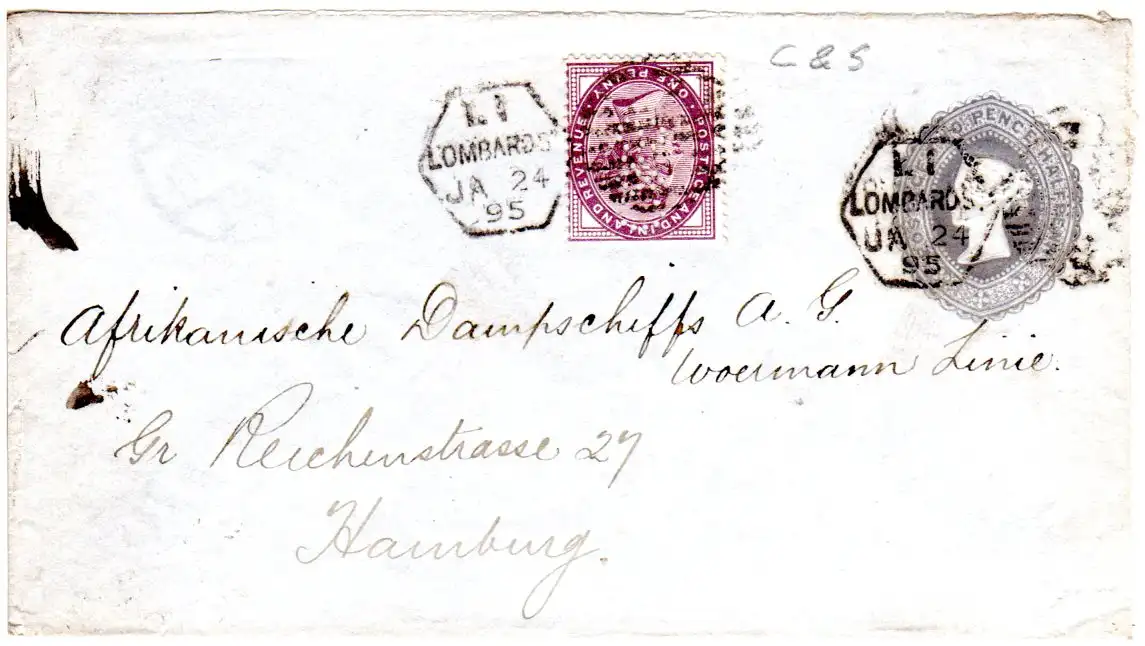 C & S
L1
LOMBARD S
JA 24
95
POSTAGE AND INLAND REVENUE
ONE PENNY
L1
LOMBARD ST
JA 24
95
PENCE HALFPENNY
Afrikanische Dampschiffs A. G.
Woermann Linie.
Gr Reichenstrasse 27
Hamburg.